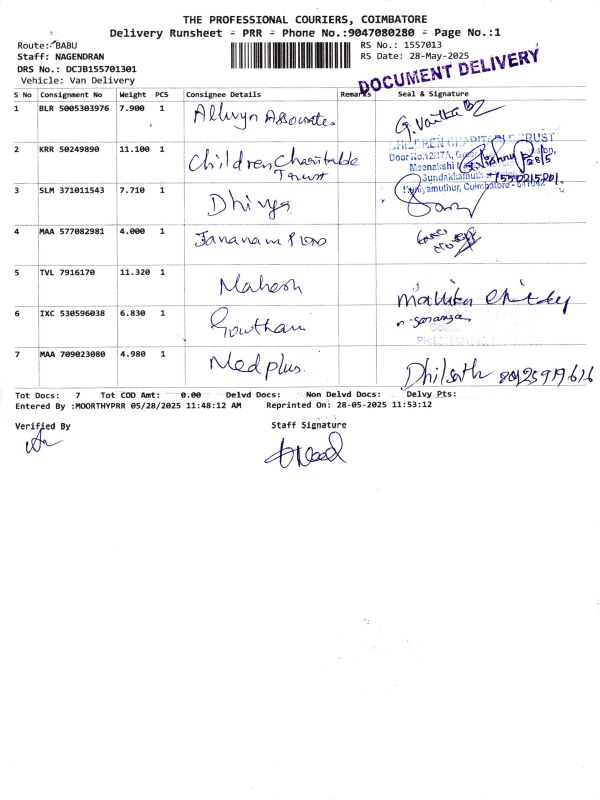 THE PROFESSIONAL COURIERS, COIMBATORE
Delivery Runsheet - PRR - Phone No.:9047080280 - Page No.:1
Route: BABU
RS No.: 1557013
Staff: NAGENDRAN
RS Date: 28-May-2025
DRS No.: DCJB155701301
Vehicle: Van Delivery
DOCUMENT DELIVERY
S No Consignment No Weight PCS Consignee Details Remarks Seal & Signature
1 BLR 5005303976 7.900 1 Allwyn Associates
2 KRR 50249890 11.100 1 Children Charitable Trust
CHILDREN CHARITABLE TRUST
Door No.12/17A,
Meenakshi
Sundakkamuth
Coimbatore - 641042
28/5
3 SLM 371011543 7.710 1 Dhivya
4 MAA 577082981 4.000 1
5 TVL 7916170 11.320 1 Mahesh
6 IXC 530596038 6.830 1 Gowtham
7 MAA 709023080 4.980 1 Medplus
Tot Docs: 7 Tot COD Amt: 0.00 Delvd Docs: Non Delvd Docs: Delvy Pts:
Entered By :MOORTHYPRR 05/28/2025 11:48:12 AM Reprinted On: 28-05-2025 11:53:12
Verified By Staff Signature